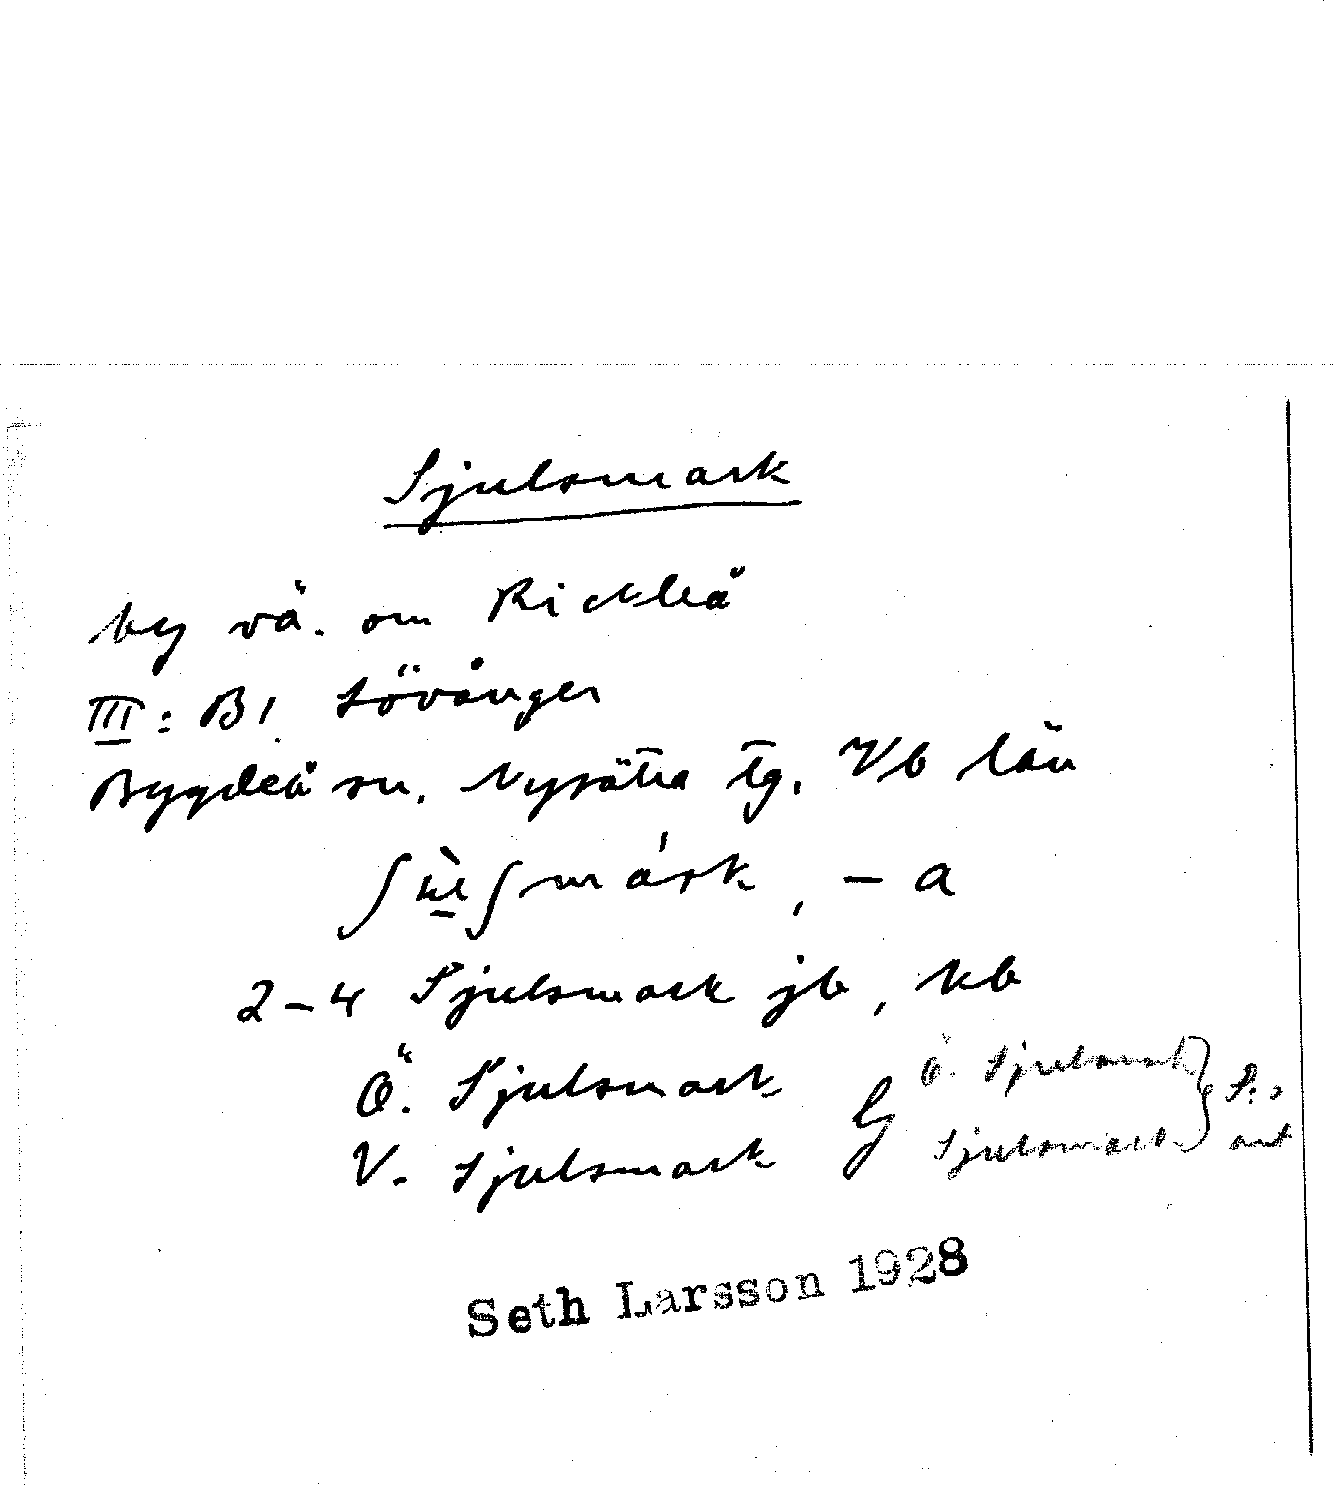 Sjulsmark
by vä. om Rickleå
III: B1 Lövånger
Bygdeå sn. Nysätra tg. Vb län
mark, - a
2-4 Sjulsmark jb, kb
Ö. Sjulsmark G Ö. Sjulsmark
V. Sjulsmark Sjulsmark
Seth Larsson 1928